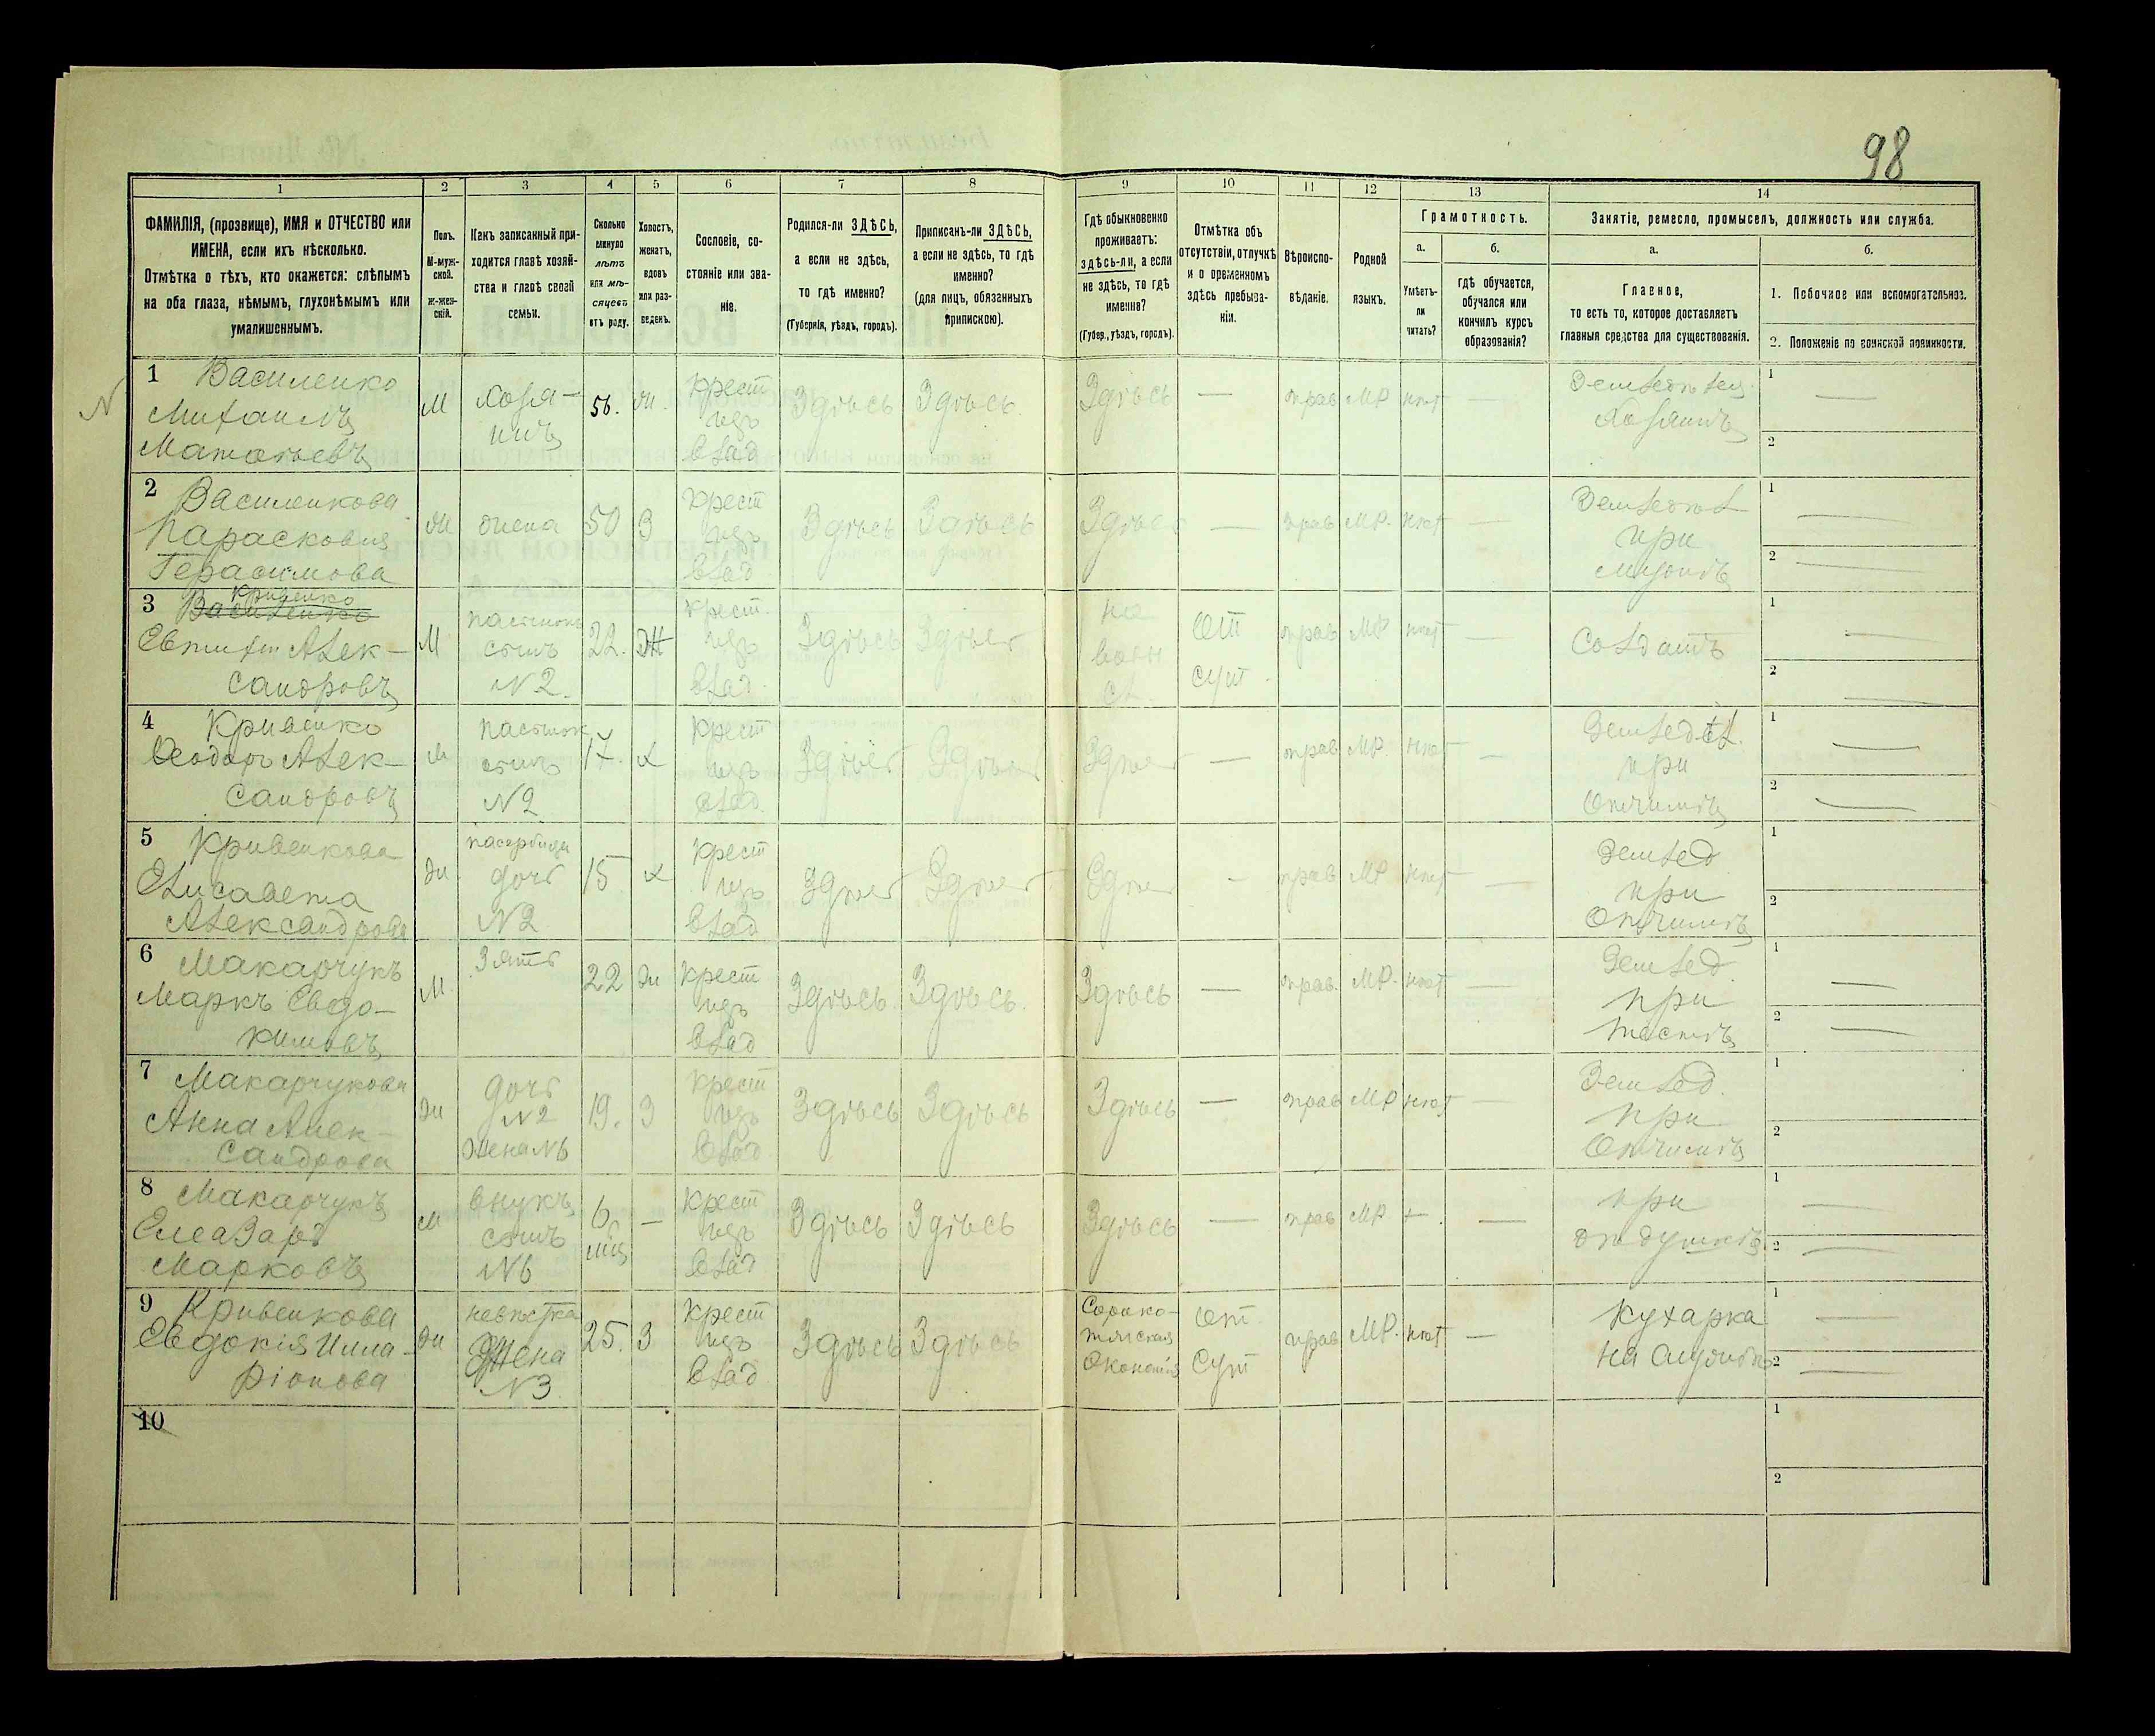 98
1 2 3 4 5 6 7 8 9 10 11 12 13 14
ФАМИЛІЯ, (прозвище), ИМЯ и ОТЧЕСТВО или
ИМЕНА, если ихъ нѣсколько.
Отмѣтка о тѣхъ, кто окажется: слѣпымъ
на оба глаза, нѣмымъ, глухонѣмымъ или
умалишеннымъ.
Полъ.
М-муж-
ской.
ж-жен-
скій.
Какъ записанный при-
ходится главѣ хозяй-
ства и главѣ своей
семьи.
Сколько
минуло
лѣтъ
или мѣ-
сяцевъ
отъ роду.
Холостъ,
женатъ,
вдовъ
или раз-
веденъ.
Сословіе, со-
стояніе или зва-
ніе.
Родился-ли ЗДѢСЬ,
а если не здѣсь,
то гдѣ именно?
(Губернія, уѣздъ, городъ).
Приписанъ-ли ЗДѢСЬ,
а если не здѣсь, то гдѣ
именно?
(для лицъ, обязанныхъ
припискою).
Гдѣ обыкновенно
проживаетъ:
здѣсь-ли, а если
не здѣсь, то гдѣ
именно?
(Губер., уѣздъ, городъ).
Отмѣтка объ
отсутствіи, отлучкѣ
и о временномъ
здѣсь пребыва-
ніи.
Вѣроиспо-
вѣданіе.
Родной
языкъ.
Грамотность.
а. б.
Умѣетъ-
ли
читать?
гдѣ обучается,
обучался или
кончилъ курсъ
образованія?
Занятіе, ремесло, промыселъ, должность или служба.
а. б.
Главное,
то есть то, которое доставляетъ
главныя средства для существованія.
1. Побочное или вспомогательное.
2. Положеніе по воинской повинности.
1 Василенко
Михаилъ
Матѳѣевъ
М
Хозя-
инъ
56.
Ж.
Крест
изъ
влад
Здѣсь
Здѣсь.
Здѣсь
—
прав
МР
нѣт
—
Земледѣлец.
Хозяинъ
1 —
2
2 Василенкова
Парасковія
Герасимова
Ж
жена
50
З
Крест
изъ
влад
Здѣсь
Здѣсь
Здѣсь
—
прав
МР.
нѣт
—
Земледѣл
при
мужѣ
1 —
2 —
3 Василенко
Кривенко
Евтихій Алек-
сандровъ
М
пасынок
сынъ
№2.
22.
Ж
крест.
изъ
влад.
Здѣсь
Здѣсь
на
воен
сл.
От
сут.
прав
МР
нѣт
—
Солдатъ
1 —
2 —
4 Кривенко
Ѳеодоръ Алек-
сандровъ
М
пасынок
сынъ
№2
17.
Х
Крест
изъ
влад.
Здѣсь
Здѣсь
Здѣсь
—
прав
МР.
нѣт
—
Земледѣл.
при
Отчимѣ
1 —
2 —
5 Кривенкова
Елисавета
Александрова
Ж.
пасербица
дочь
№2
15
Х
Крест
изъ
влад
Здѣсь
Здѣсь
Здѣсь
—
прав
МР
нѣт
—
Землед
при
Отчимѣ
1
2
6 Макарчукъ
Маркъ Евдо-
кимовъ
М.
Зять
22
Ж
Крест
изъ
влад
Здѣсь.
Здѣсь.
Здѣсь
—
прав.
МР.
нѣт
—
Землед.
при
тестѣ
1 —
2 —
7 Макарчукова
Анна Алек-
сандрова
Ж
дочь
№2
Жена №6
19.
З
Крест
изъ
влад
Здѣсь
Здѣсь
Здѣсь
—
прав
МР
нѣт
—
Землед.
при
Отчимѣ
1
2
8 Макарчукъ
Елеазаръ
Марковъ
М
внукъ
сынъ
№6
6
мц
—
Крест
изъ
влад
Здѣсь
Здѣсь
Здѣсь
—
прав
МР
—
—
при
дѣдушкѣ
1 —
2 —
9 Кривенкова
Евдокія Илла-
ріонова
Ж
невѣстка
Жена
№3
25.
З
Крест
изъ
влад
Здѣсь
Здѣсь
Экономія
От
Сут
прав
МР.
нѣт
—
Кухарка
на службѣ
1 —
2 —
10
1
2